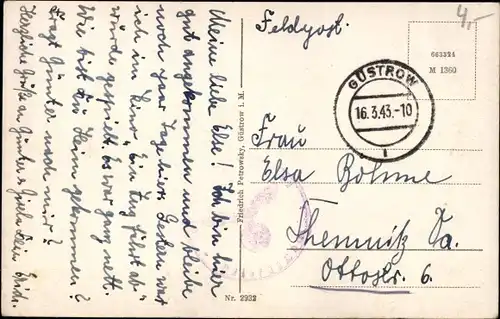 Meine liebe Else! Ich bin hier
gut angekommen und bleibe
noch paar Tage hier. Gestern war
ich im Kino. "Ein Zug fährt ab"
wurde gespielt. Es war ganz nett.
Wie bist Du Heim gekommen?
Fragt Günter nach mir?
Herzliche Grüße an Günter & Dein Erich.
Friedrich Petrowsky, Güstrow i. M.
Nr. 2932
Feldpost.
4,-
663324
M 1360
GÜSTROW
16.3.43.-10
1
Frau
Elsa Böhme
Chemnitz Sa.
Ottostr. 6.